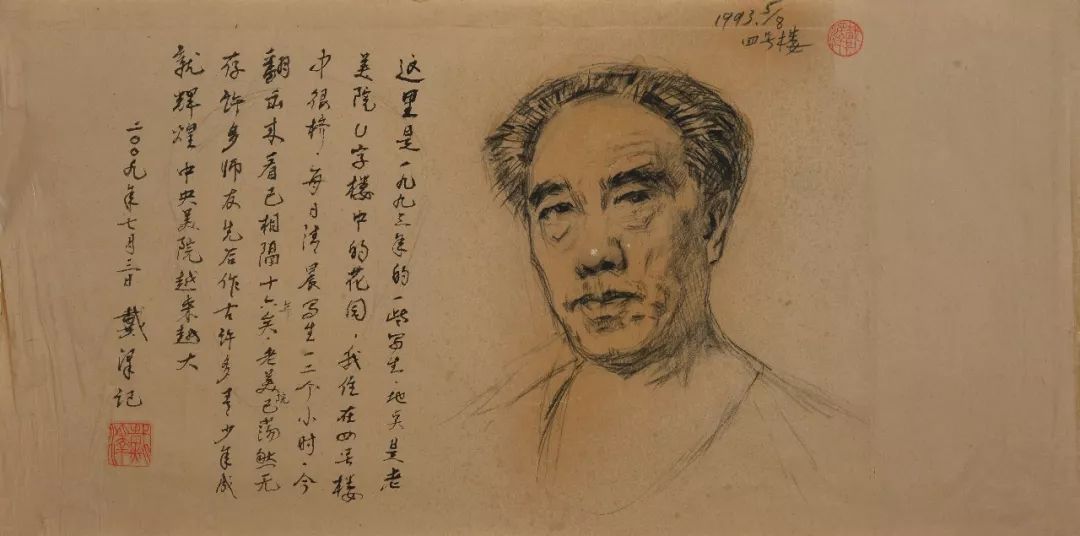 1993.5/8
四号楼
戴泽
这里是一九九三年的一些写生·地点是老
美院U字楼中的花园,我住在四号楼
中很挤·每日清晨写生一二个小时·今
翻出来看已相隔十六年矣·老美院已荡然无
存许多师友先后作古许多青少年成
就辉煌中央美院越来越大
二〇〇九年七月三日 戴泽记
戴泽